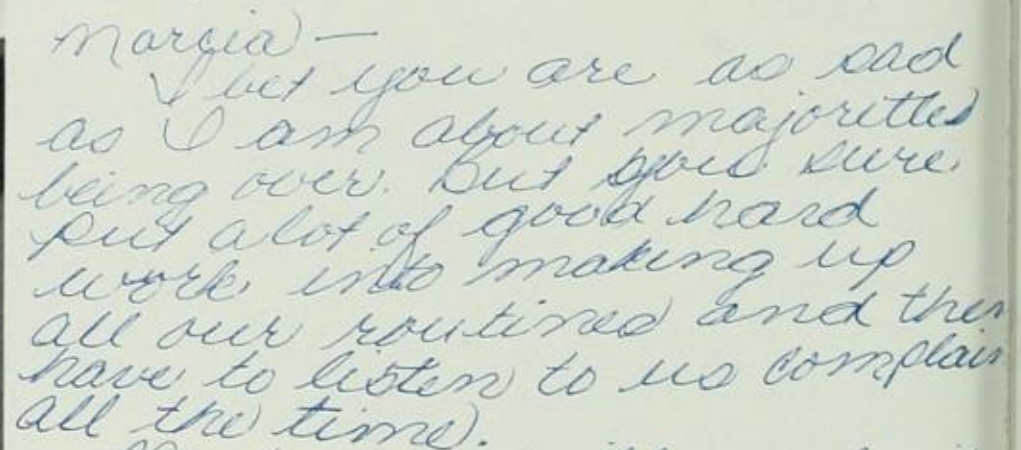 Marcia —
I bet you are as sad
as I am about majorettes
being over. But you sure
put a lot of good hard
work into making up
all our routines and then
have to listen to us complain
all the time.